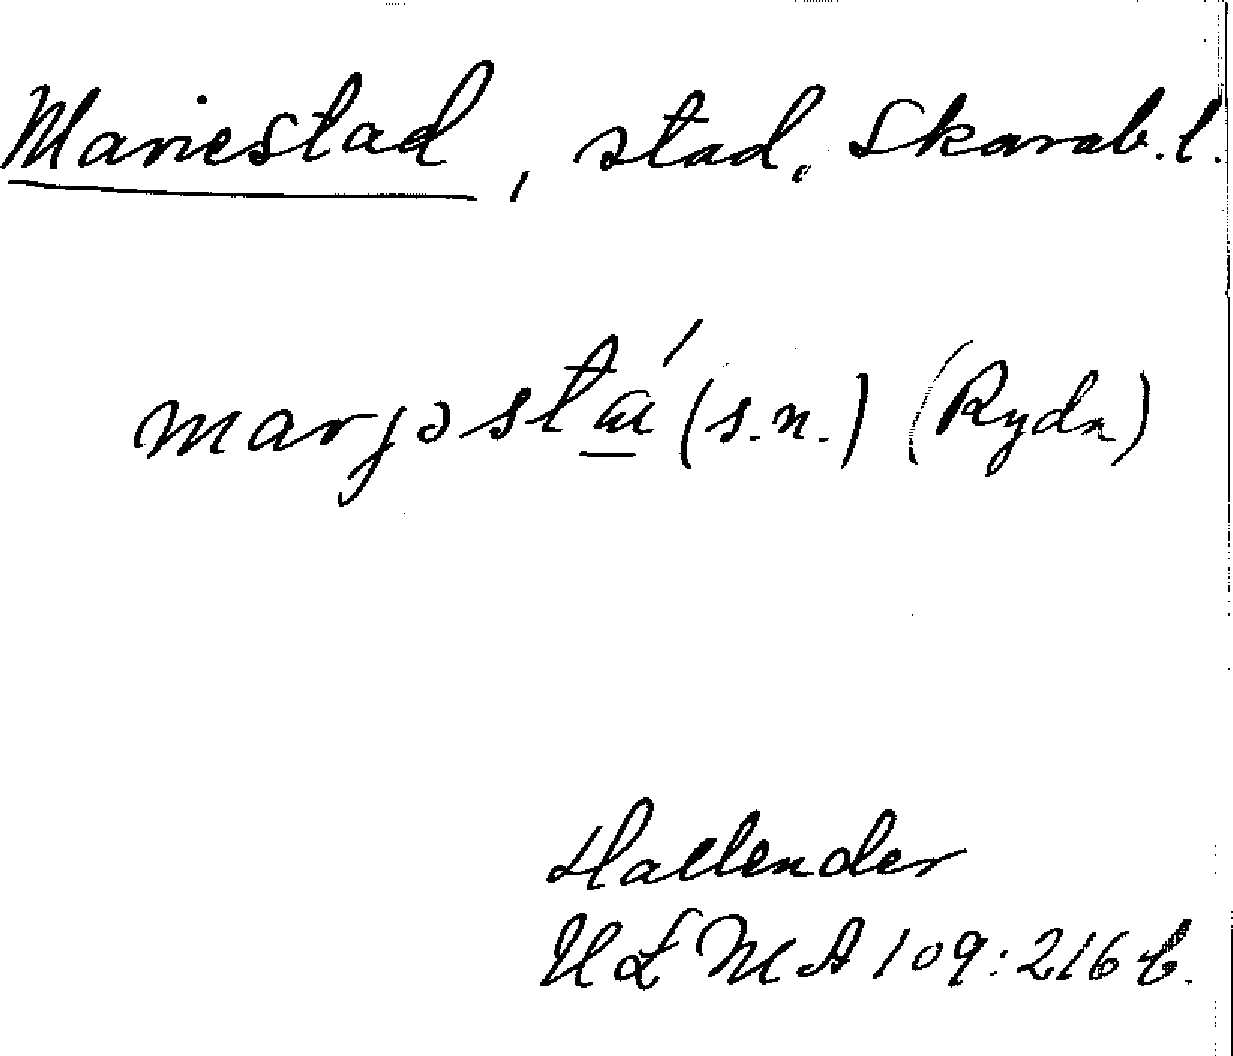 Mariestad, stad. Skarab. l.
marjəstá (s.n.) (Rydn)
Hallender
ULMA 109:216 b.